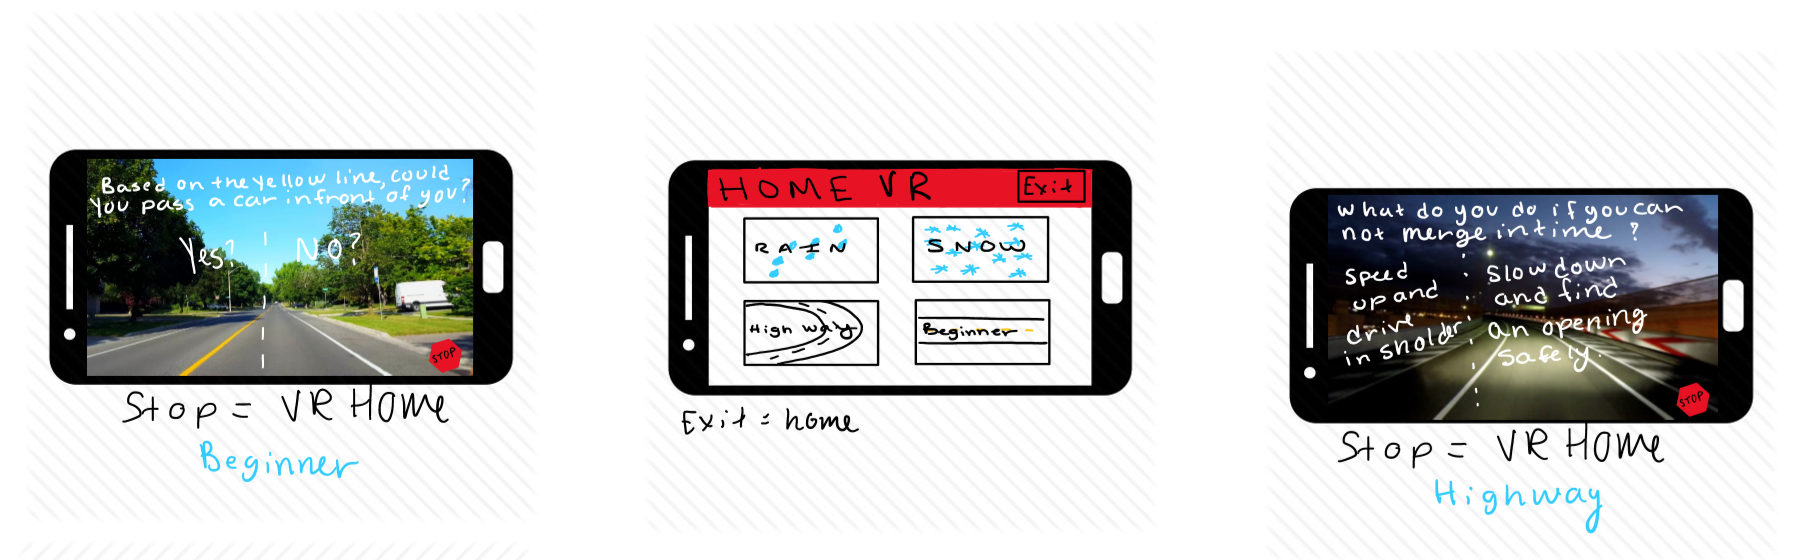 Based on the yellow line, could
you pass a car infront of you?
Yes?
NO?
STOP
Stop = VR Home
Beginner
HOME VR
Exit
RAIN
SNOW
High way
Beginner
Exit = home
What do you do if you can
not merge in time ?
Speed
up and
drive
in sholder
Slow down
and find
an opening
Safely.
STOP
Stop = VR Home
Highway